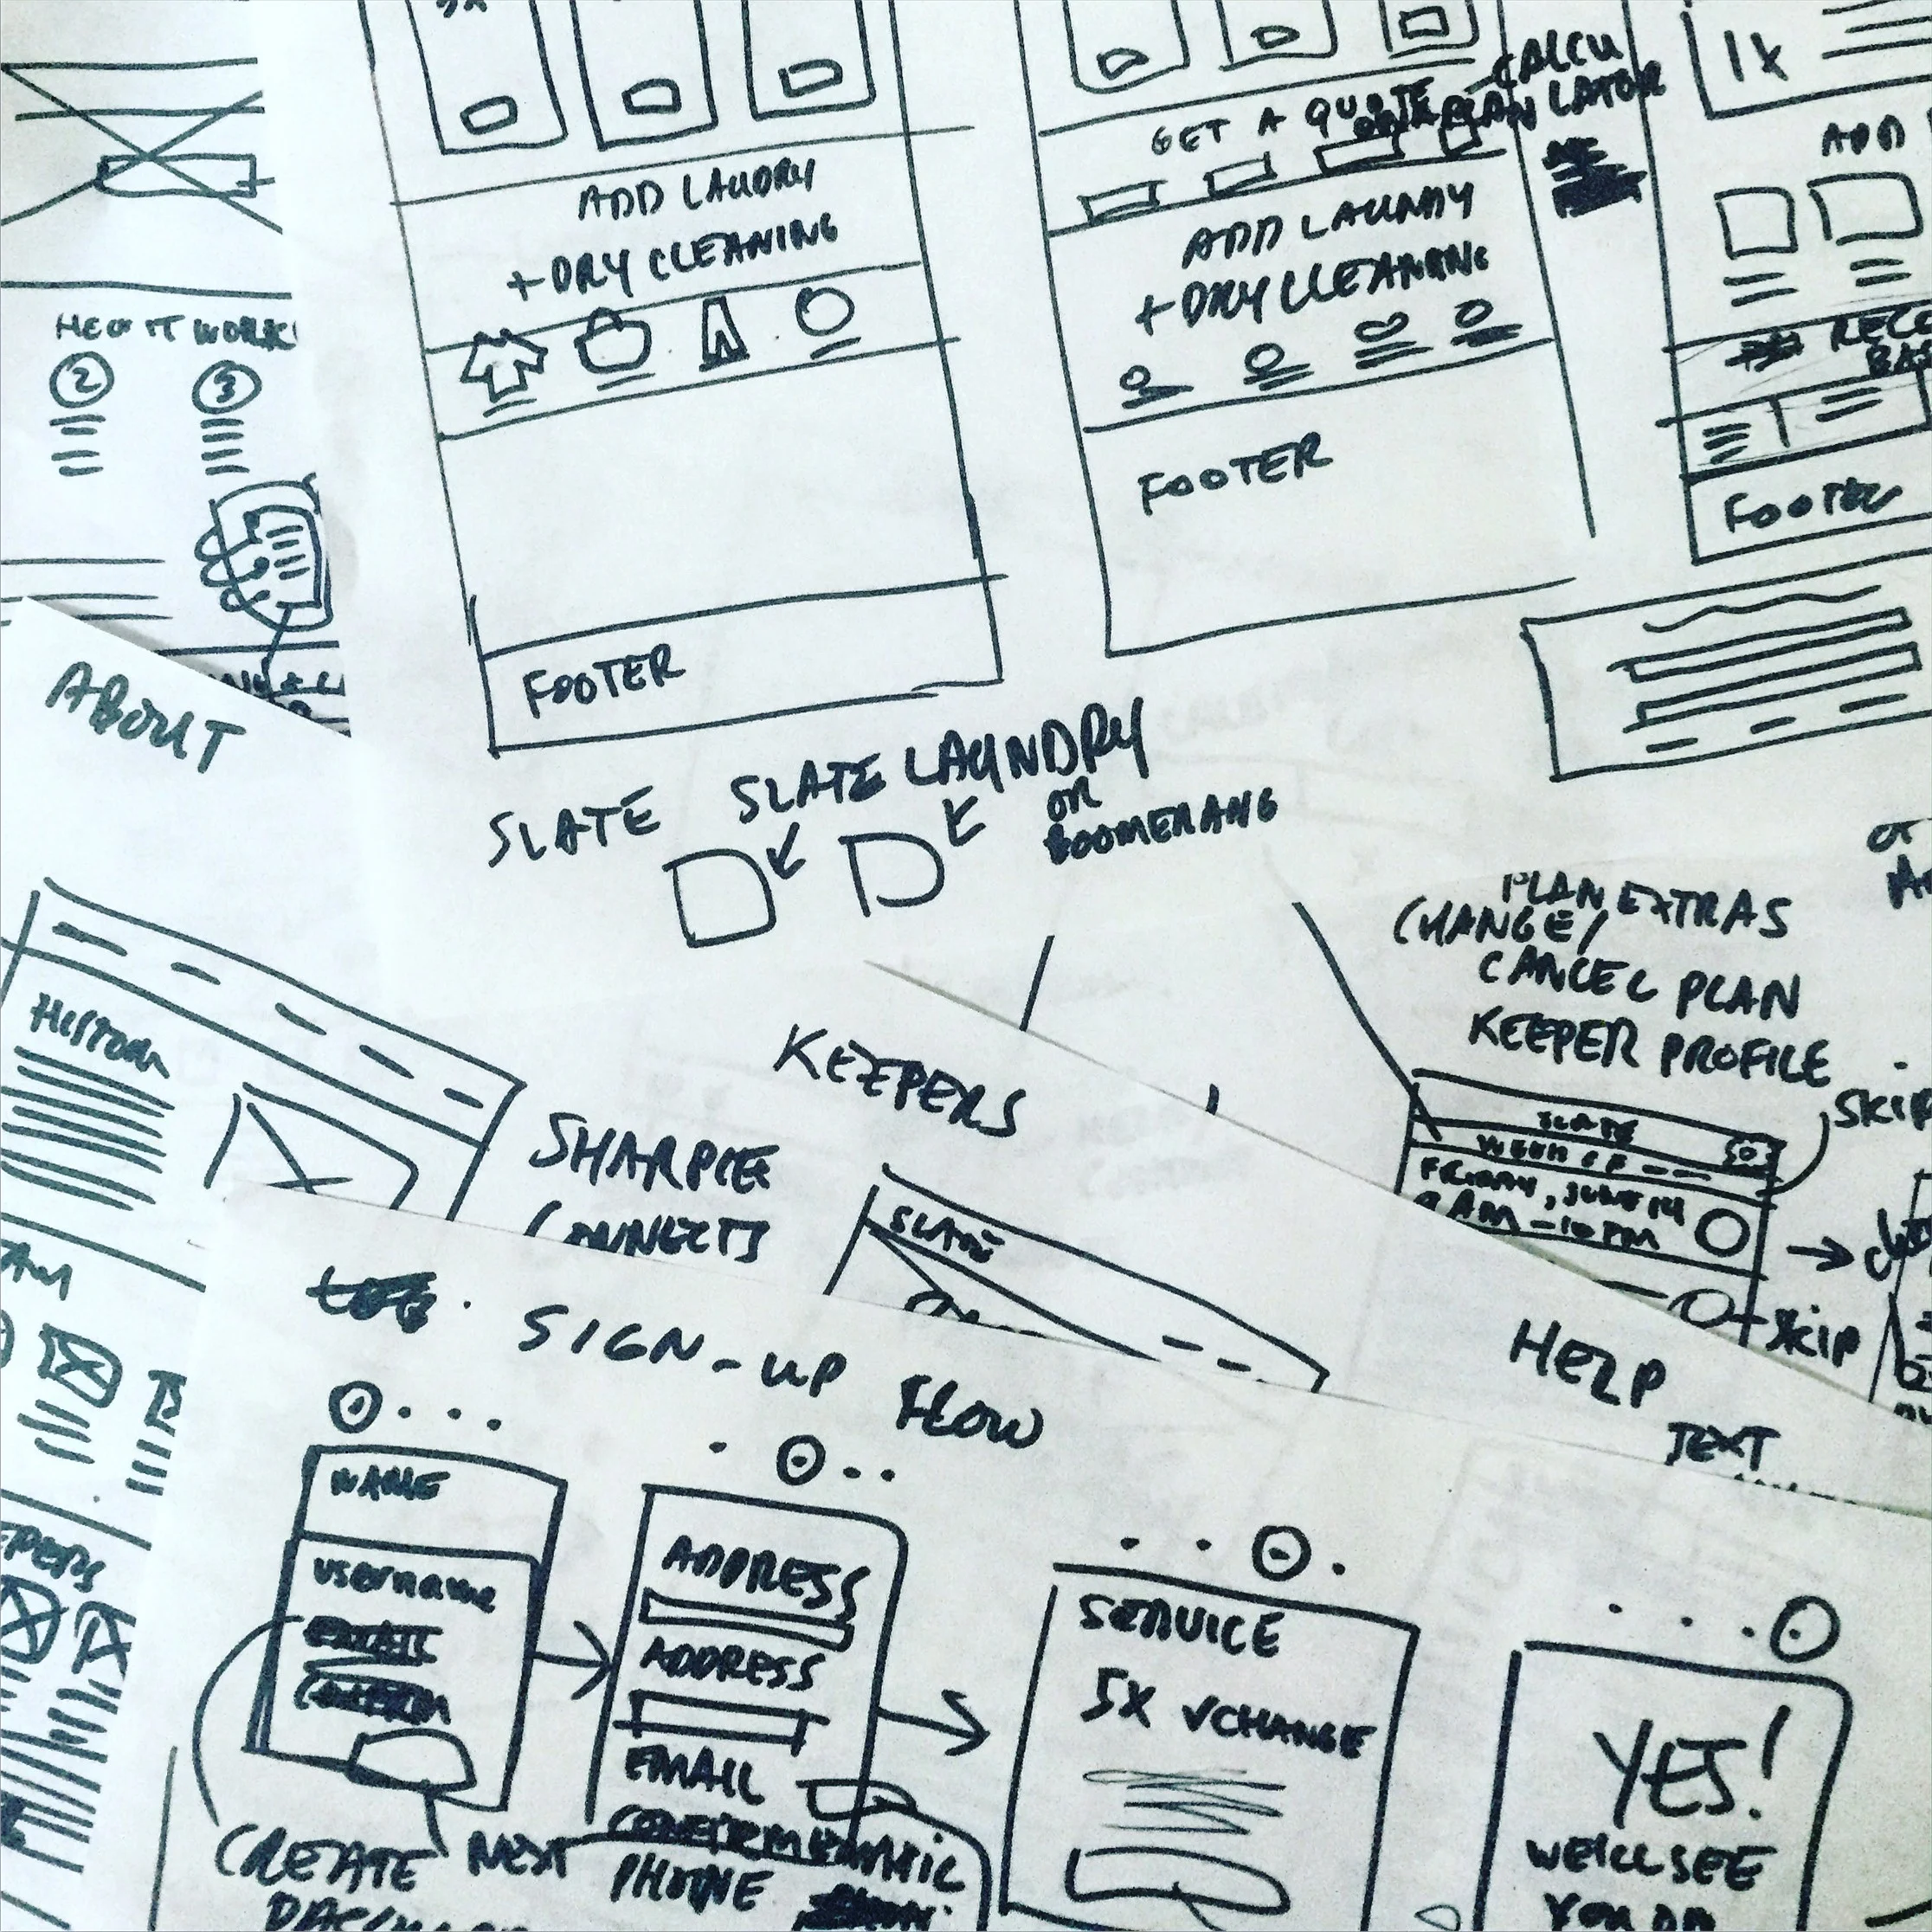 GET A QUOTE
CALCU
LATOR
1X
ADD
ADD LAUDRY
+DRY CLEANING
ADD LAUNDY
+DRY CLEANING
HOW IT WORKS
2
3
FOOTER
FOOTER
FOOTER
ABOUT
SLATE
SLATE LAUNDRY
OR
BOOMERANG
PLAN EXTRAS
CHANGE/
CANCEL PLAN
KEEPER PROFILE
SKIP
SLATE
WEEK OF --
FRIDAY, JUNE 14
8AM-10PM
SKIP
HISTORY
KEEPERS
SHARPIE
CONNECTS
SLATE
HELP
TEXT
SIGN-UP FLOW
NAME
USERNAME
NEXT
CREATE
ADDRESS
ADDRESS
EMAIL
PHONE
SERVICE
5X
CHANGE
YES!
WE'LL SEE
YOU ON